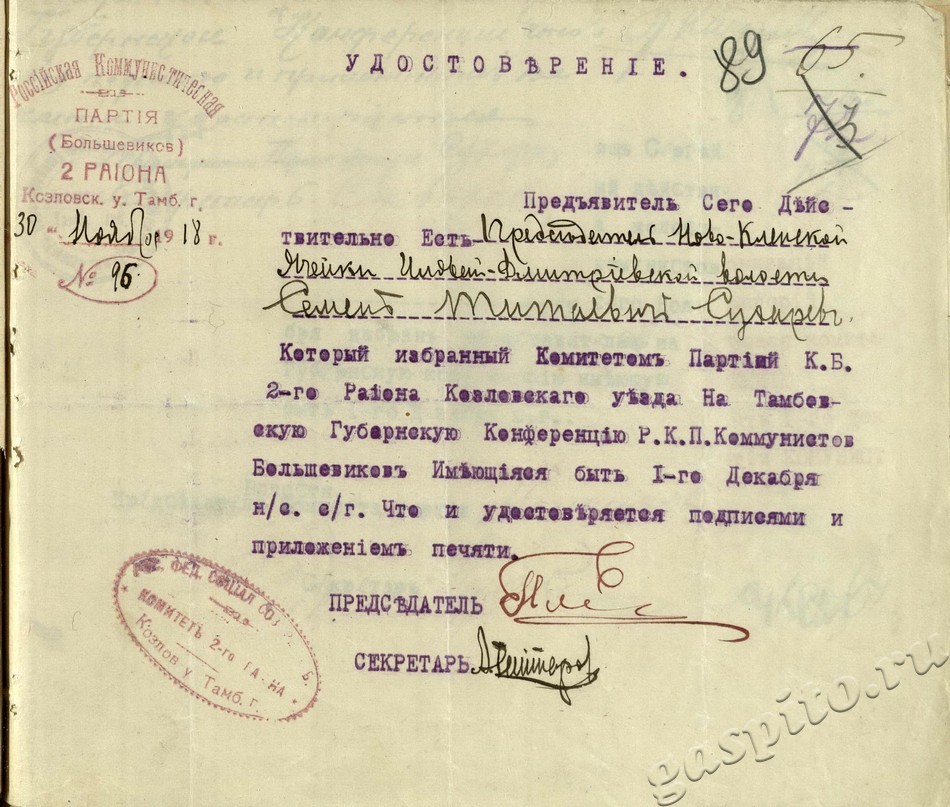 УДОСТОВѢРЕНІЕ.
89
65
73
Россійская Коммунистическая
ПАРТІЯ
(Большевиков)
2 РАІОНА
Козловск. у. Тамб. г.
30 Ноября 1918 г.
№ 96.
Предъявитель Сего Дѣйс-
твительно Есть Председатель Ново-Кленской
Ячейки Иловай-Дмитріевской волости
Семенъ Титаевич Сухарев.
Который избранный Комитетомъ Партіий К.Б.
2-го Раіона Козловскаго уѣзда На Тамбов-
скую Губернскую Конференцію Р.К.П.Коммунистов
Большевиковъ Имѣющіяся быть I-го Декабря
н/с. с/г. Что и удостовѣряется подписями и
приложеніемъ печяти.
ПРЕДСѢДАТЕЛЬ
СЕКРЕТАРЬ
РОС. ФЕД. СОЦІАЛ СО
КОМИТЕТЪ 2-го
Козлов у Тамб. г.
gaspito.ru